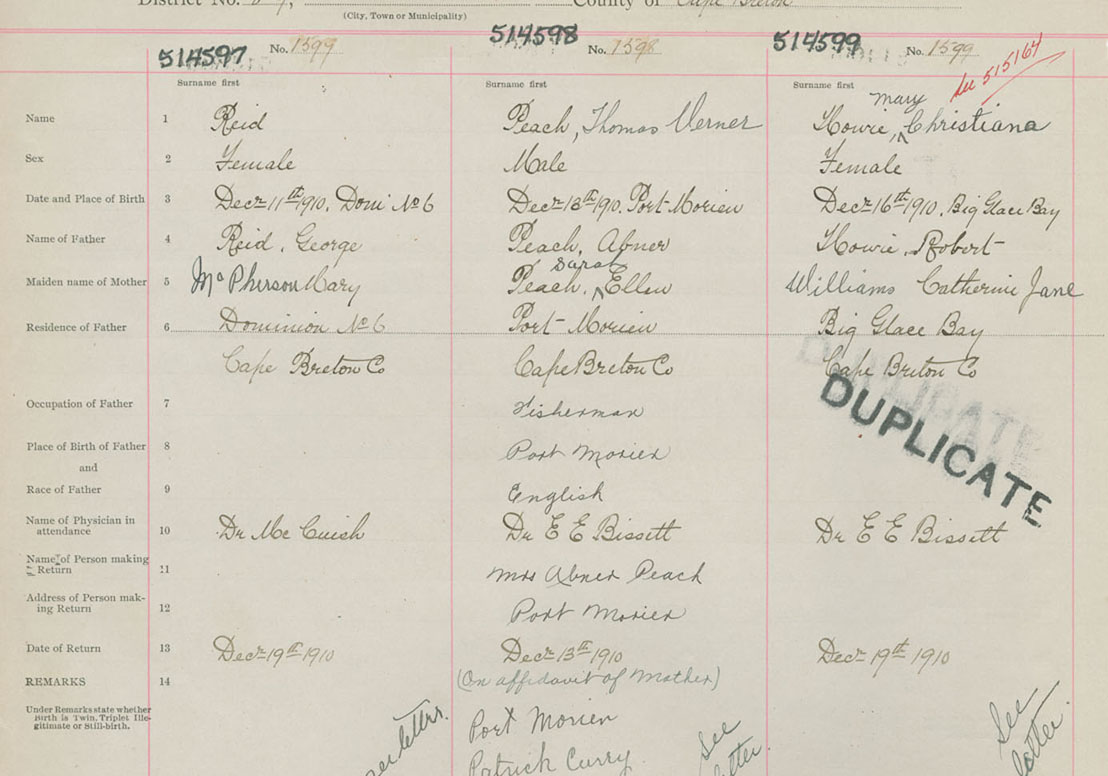 County of Cape Breton
(City, Town or Municipality)
514597 No. 1599 514598 No. 1598 514599 No. 1599 See 515164
Surname first Surname first Surname first
Mary
Name 1 Reid Peach, Thomas Verner Howie, ^ Christiana
Sex 2 Female Male Female
Date and Place of Birth 3 Decr 11th 1910, Dom No 6 Decr 13th 1910. Port Morien Decr 16th 1910, Big Glace Bay
Name of Father 4 Reid, George Peach, Abner Howie, Robert
Sarah
Maiden name of Mother 5 McPherson Mary Peach, ^ Ellen Williams Catherine Jane
Residence of Father 6 Dominion No 6 Port Morien Big Glace Bay
Cape Breton Co Cape Breton Co Cape Breton Co
DUPLICATE
Occupation of Father 7 Fisherman
Place of Birth of Father 8 Port Morien
and
Race of Father 9 English
Name of Physician in
attendance 10 Dr Mc Cuish Dr E E Bissett Dr E E Bissett
Name of Person making
Return 11 Mrs Abner Peach
Address of Person mak-
ing Return 12 Port Morien
Date of Return 13 Decr 19th 1910 Decr 13th 1910 Decr 19th 1910
REMARKS 14 (On affidavit of Mother)
Under Remarks state whether
Birth is Twin, Triplet Ille-
gitimate or Still-birth.
letters.
Port Morien
Patrick Curry
See
letter.
See
letter.